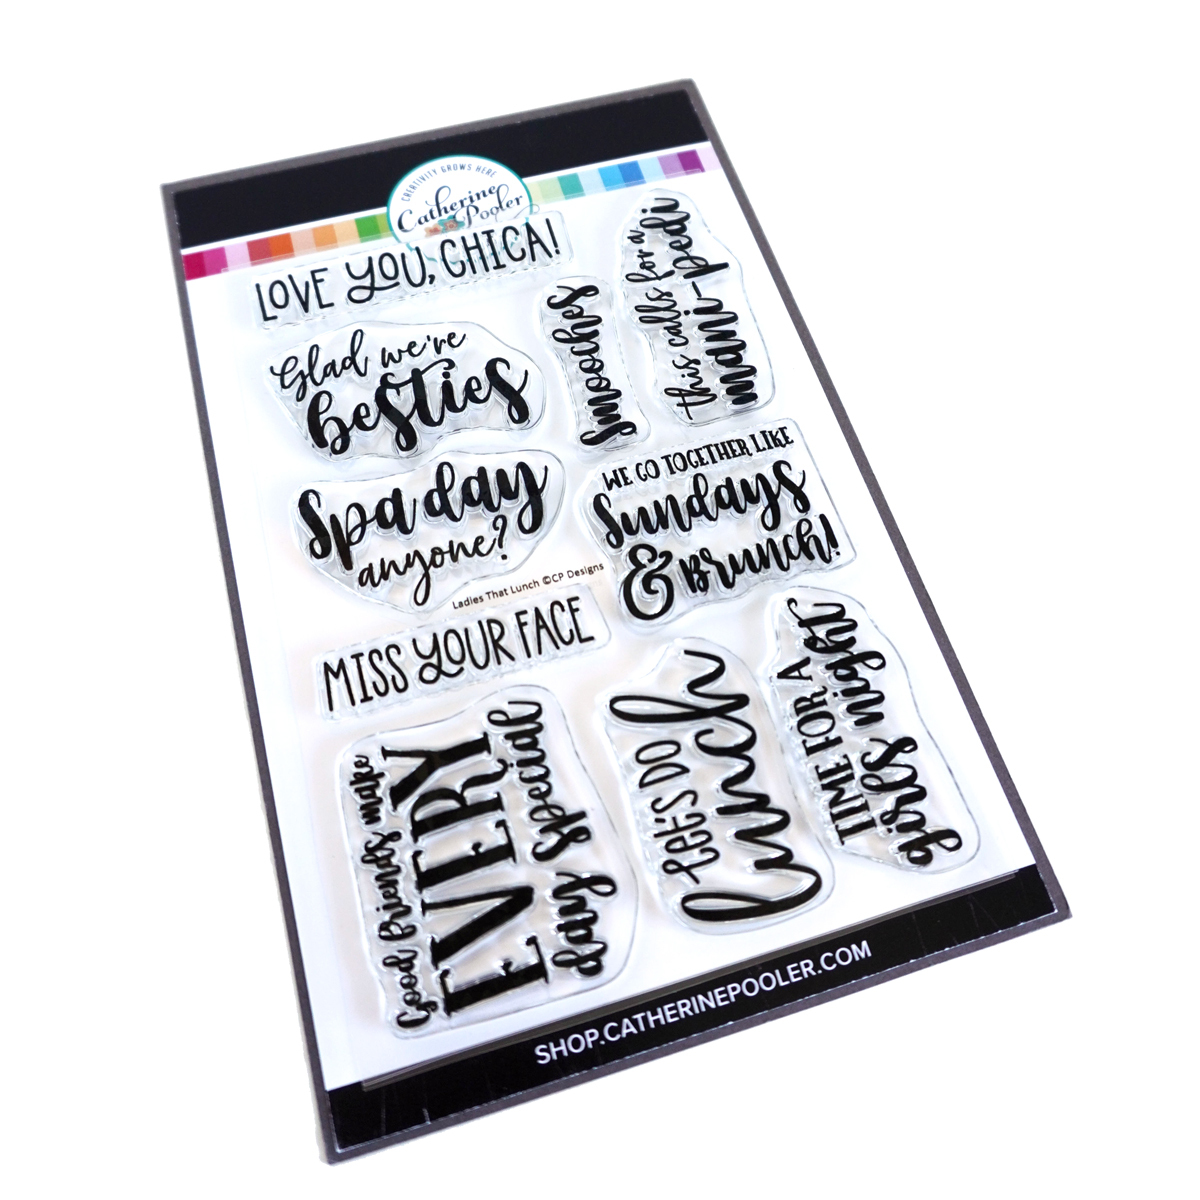 CREATIVITY GROWS HERE
Catherine
Pooler
LOVE YOU, CHICA!
Glad we're
besties
Smooches
This calls for a
mani-pedi
Spa day
anyone?
WE GO TOGETHER LIKE
Sundays
& Brunch!
Ladies That Lunch ©CP Designs
MISS YOUR FACE
Good friends make
EVERY
day special
LET'S DO
lunch
TIME FOR A
girls night
SHOP.CATHERINEPOOLER.COM